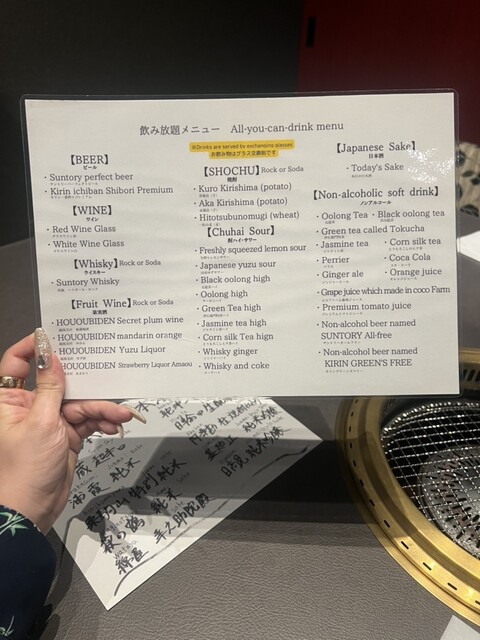 飲み放題メニュー All-you-can-drink menu
※Drinks are served by exchanging glasses
お飲み物はグラス交換制です
【BEER】
ビール
・Suntory perfect beer
・Kirin ichiban Shibori Premium
【WINE】
ワイン
・Red Wine Glass
・White Wine Glass
【Whisky】Rock or Soda
ウイスキー
・Suntory Whisky
【Fruit Wine】Rock or Soda
果実酒
・HOUOUBIDEN Secret plum wine
・HOUOUBIDEN mandarin orange
・HOUOUBIDEN Yuzu Liquor
HOUOUBIDEN Strawberry Liquor Amaou
【SHOCHU】Rock or Soda
焼酎
・Kuro Kirishima (potato)
・Aka Kirishima (potato)
・Hitotsubunomugi (wheat)
【Chuhai Sour】
酎ハイ・サワー
・Freshly squeezed lemon sour
・Japanese yuzu sour
・Black oolong high
・Oolong high
・Green Tea high
・Jasmine tea high
・Corn silk Tea high
・Whisky ginger
・Whisky and coke
【Japanese Sake】
日本酒
・Today's Sake
【Non-alcoholic soft drink】
ノンアルコール
・Oolong Tea ・Black oolong tea
・Green tea called Tokucha
・Jasmine tea ・Corn silk tea
・Perrier ・Coca Cola
・Ginger ale ・Orange juice
・Grape juice which made in coco Farm
・Premium tomato juice
・Non-alcohol beer named
SUNTORY All-free
・Non-alcohol beer named
KIRIN GREEN'S FREE
純米